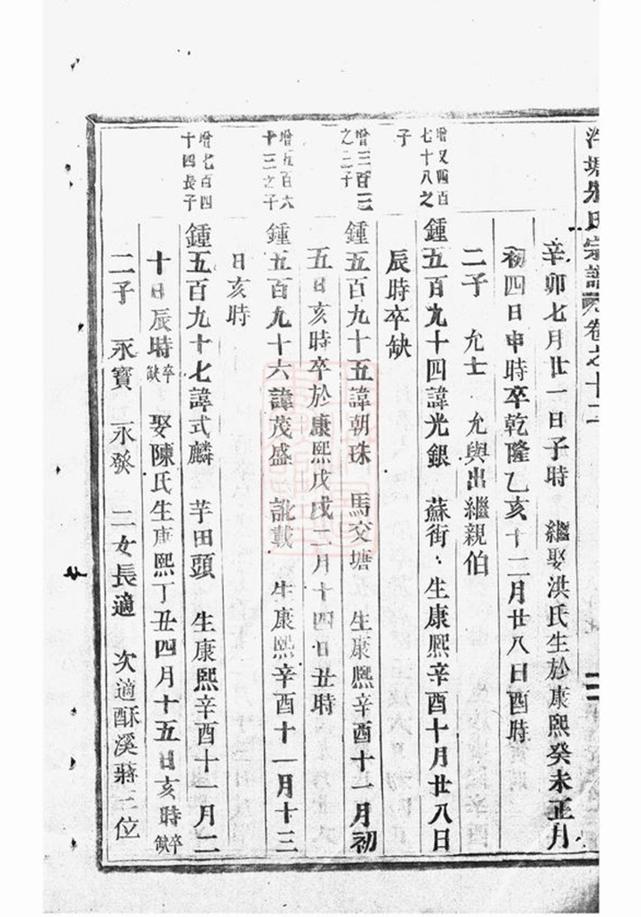 氏宗譜卷之十二
辛卯七月廿一日子時 繼娶洪氏生於康熙癸未正月
初四日申時卒乾隆乙亥十二月廿八日酉時
二子 允士 允與出繼親伯
增又四百七十八之子
鍾五百九十四諱光銀 蘇街 生康熙辛酉十月廿八日
辰時卒缺
增三百三之二子
鍾五百九十五諱朝珠 馬交塘 生康熙辛酉十一月初
五日亥時卒於康熙戊戌二月十四日丑時
增五百六十三之子
鍾五百九十六諱茂盛 訛載 生康熙辛酉十一月十三
日亥時
增七百四十四長子
鍾五百九十七諱式麟 芋田頭 生康熙辛酉十一月二
十日辰時卒缺 娶陳氏生康熙丁丑四月十五日亥時卒缺
二子 永寶 永發 二女長適 次適酥溪蔣三位